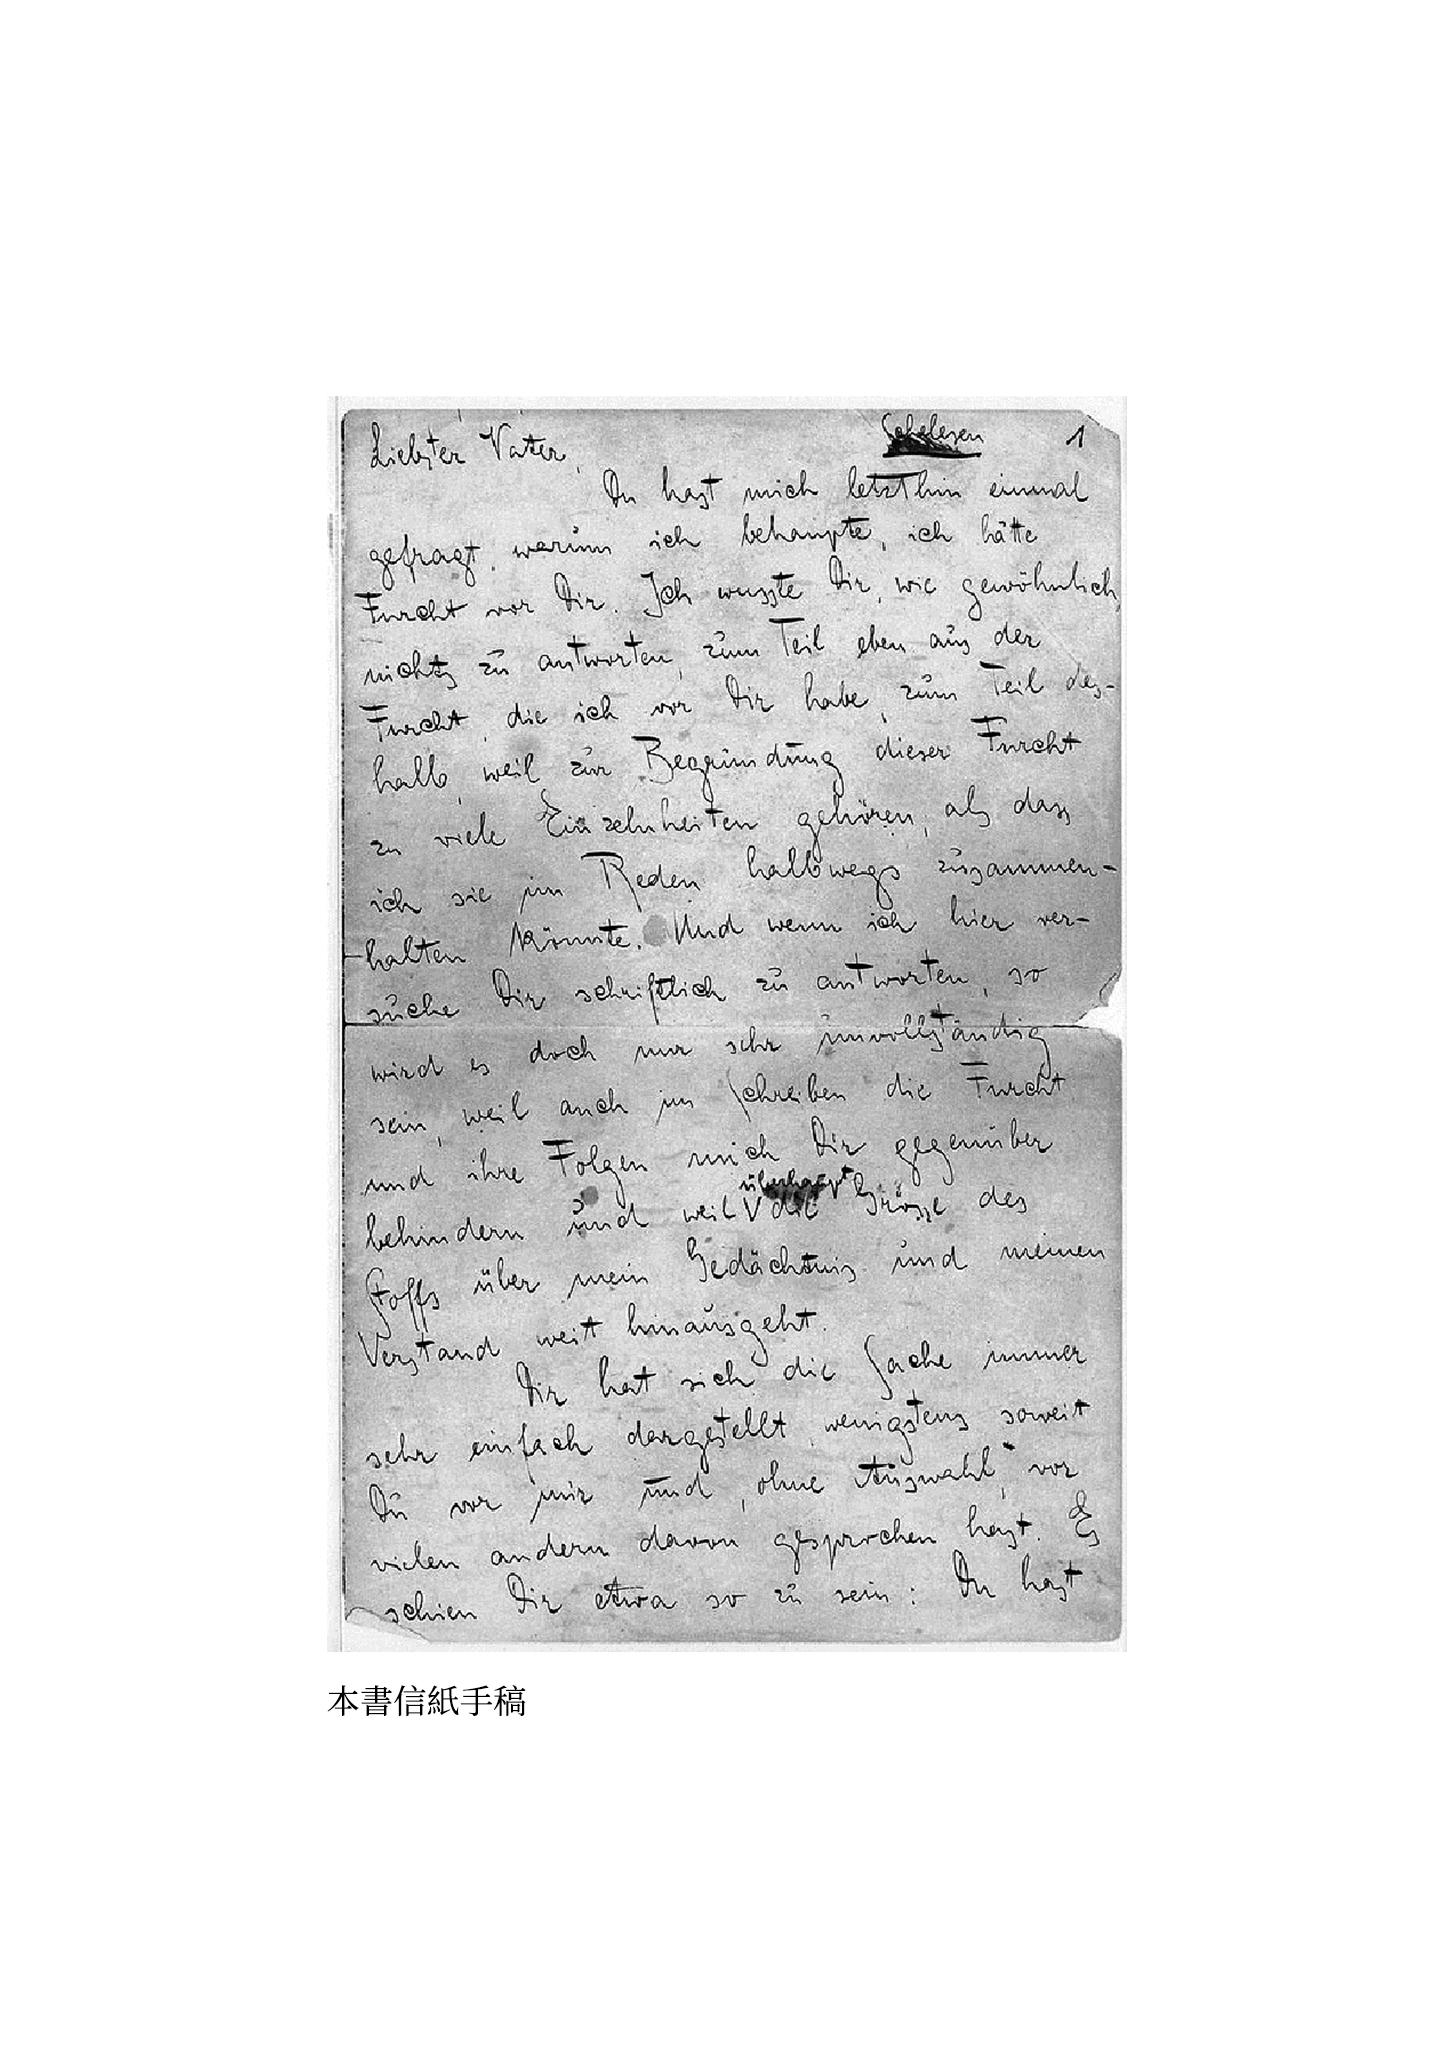 Liebster Vater,
Schelesen
1
Du hast mich letzthin einmal
gefragt, warum ich behaupte, ich hätte
Furcht vor Dir. Ich wusste Dir, wie gewöhnlich,
nichts zu antworten, zum Teil eben aus der
Furcht, die ich vor Dir habe, zum Teil des-
halb, weil zur Begründung dieser Furcht
zu viele Einzelnheiten gehören, als dass
ich sie im Reden halbwegs zusammen-
halten könnte. Und wenn ich hier ver-
suche Dir schriftlich zu antworten, so
wird es doch nur sehr unvollständig
sein, weil auch im Schreiben die Furcht
und ihre Folgen mich Dir gegenüber
behindern und weil überhaupt die Grösse des
Stoffs über mein Gedächtnis und meinen
Verstand weit hinausgeht.
Dir hat sich die Sache immer
sehr einfach dargestellt, wenigstens soweit
Du vor mir und, ohne Auswahl, vor
vielen andern davon gesprochen hast. Es
schien Dir etwa so zu sein: Du hast
本書信紙手稿